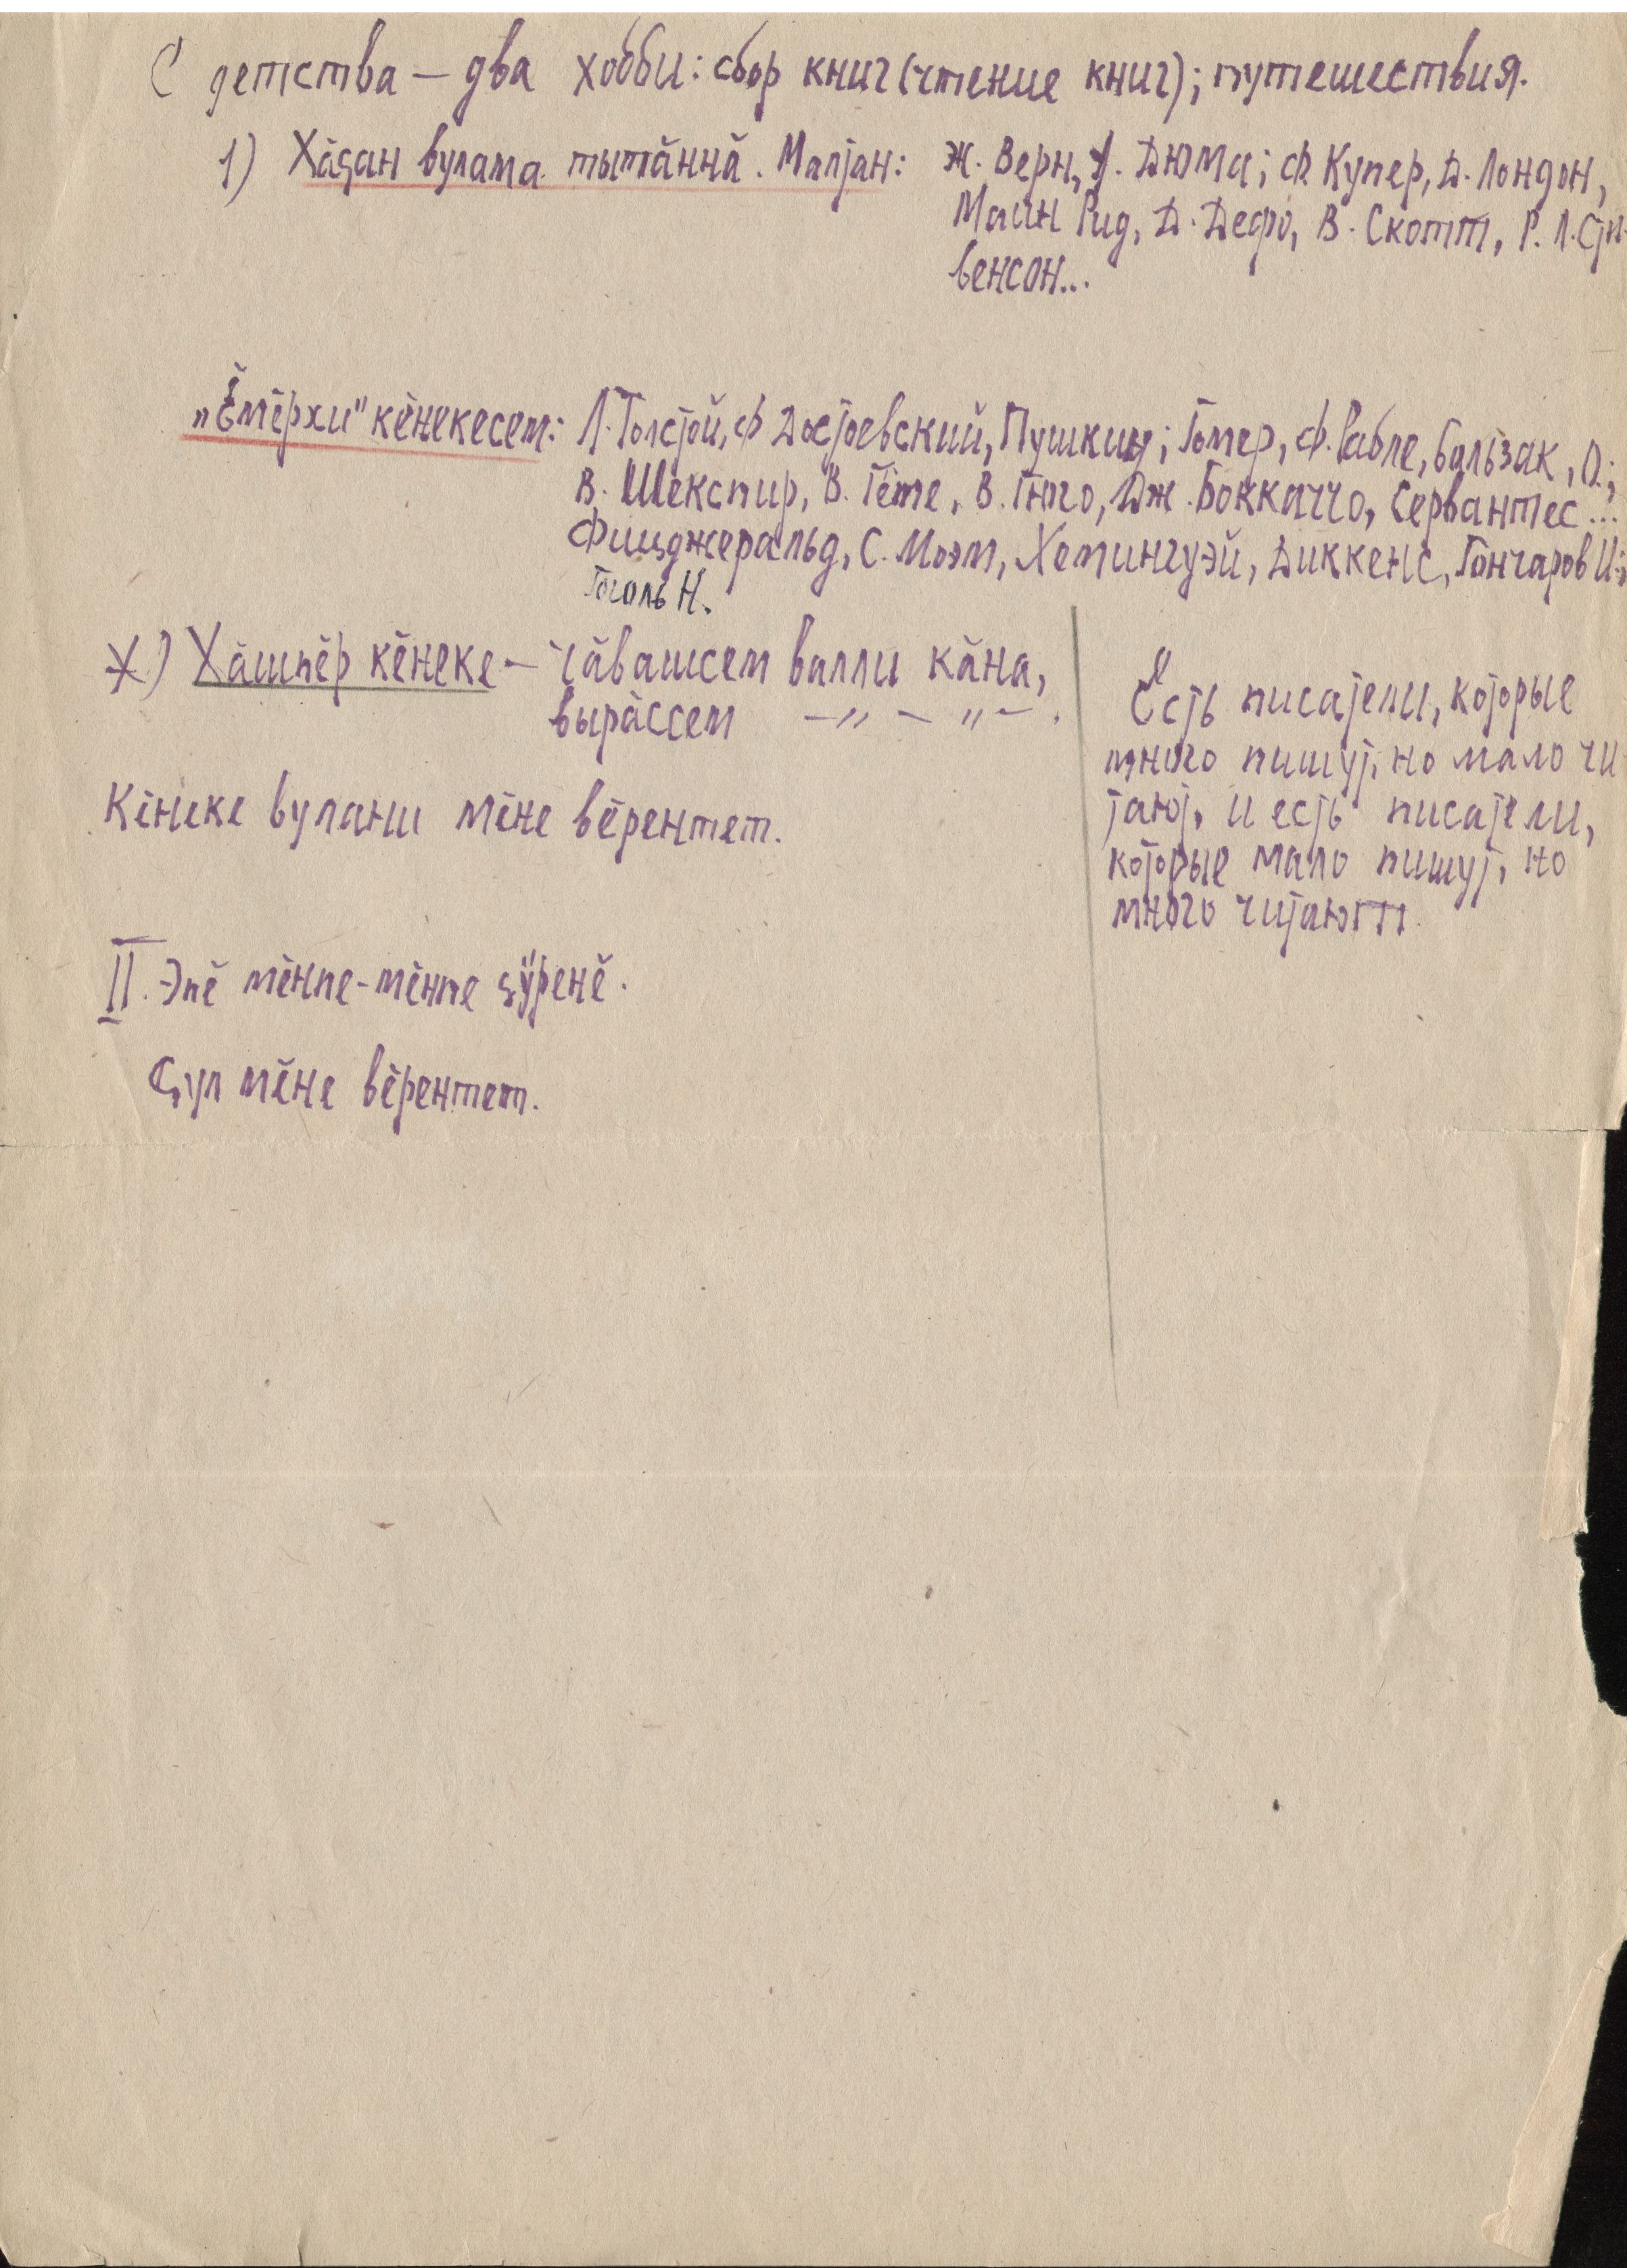 С детства – два хобби: сбор книг (чтение книг); путешествия.
1) Хăҫан вулама тытăннă. Малтан: Ж. Верн, А. Дюма; Ф Купер, Д. Лондон,
Майн Рид, Д. Дефо, В. Скотт, Р. Л. Сти-
венсон...
„Ĕмĕрхи" кĕнекесем: Л. Толстой, Ф Достоевский, Пушкин; Гомер, Ф. Рабле, Бальзак, О.;
В. Шекспир, В. Гёте, В. Гюго, Дж. Боккаччо, Сервантес...
Фицджеральд, С. Моэм, Хемингуэй, Диккенс, Гончаров И.;
Гоголь Н.
Х) Хăшпĕр кĕнеке – чăвашсем валли кăна,
вырăссем –〃–〃–.
Кĕнеке вулани мĕне вĕрентет.
II. Эпĕ мĕнпе-мĕнпе ҫӳренĕ.
Ҫул мĕне вĕрентет.
Есть писатели, которые
много пишут, но мало чи
тают, и есть писатели,
которые мало пишут, но
много читают.